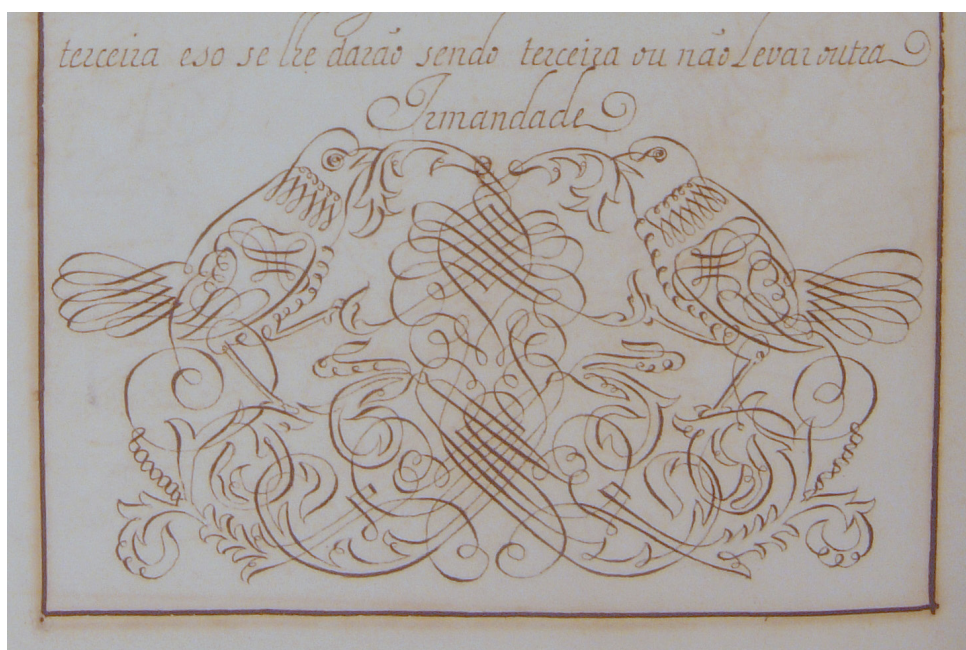 terceira eso se lhe darão sendo terceira ou não Levar outra
Irmandade